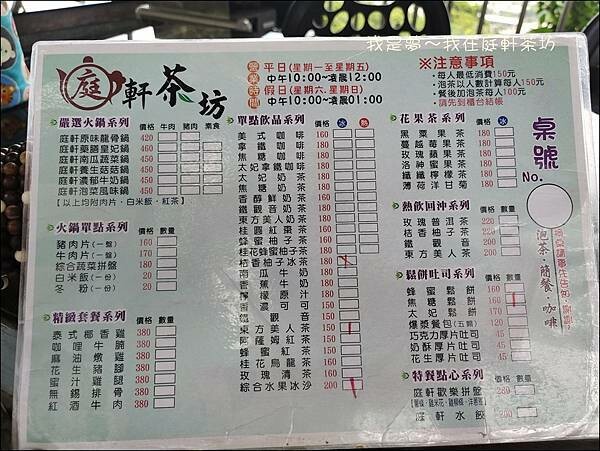 我是夢～我住庭軒茶坊
庭軒茶坊
營業時間
平日(星期一至星期五)
中午10:00~凌晨12:00
假日(星期六.星期日)
中午10:00~凌晨01:00
※注意事項
•每人最低消費150元
•泡茶以人數計算每人150元
•餐後加泡茶每人100元
•請先到櫃台結帳
桌號
No.
泡茶.簡餐.咖啡
嚴選火鍋系列 價格 牛肉 豬肉 素食
庭軒原味龍骨鍋 420
庭軒藥膳皇妃鍋 450
庭軒南瓜蔬菜鍋 450
庭軒養生菇菇鍋 450
庭軒濃郁牛奶鍋 450
庭軒泡菜風味鍋 450
【以上均附肉片、白米飯、紅茶】
火鍋單點系列 價格 數量
豬肉片(一盤) 160
牛肉片(一盤) 170
綜合蔬菜拼盤 180
白米飯(一份) 20
冬粉(一份) 20
精緻套餐系列 價格 數量
泰式椰香雞 380
咖哩牛腩 380
麻油燉雞 380
花生豬腳 380
蜜汁雞腿 380
無錫排骨 380
紅酒牛肉 380
單點飲品系列 價格 冰 熱
美式咖啡 160
拿鐵咖啡 180
焦糖咖啡 180
太妃拿鐵咖啡 180
太妃奶茶 180
焦糖奶茶 180
香醇鮮奶茶 160
鐵觀音奶茶 160
東方美人奶茶 160
桂圓紅棗茶 160
蜂蜜柚子茶 160
桔香柚子茶 160
桂花蜂蜜柚子冰茶
南瓜牛奶
香蕉牛奶
檸檬原汁
濃可可
鐵觀音 150
東方美人茶 150
阿薩姆紅茶 150
蜂蜜紅茶 150
桂花烏龍茶 150
玫瑰清茶 150
綜合水果冰沙 200
花果茶系列 價格 冰
黑森果茶 180
蔓越莓果茶 180
玫瑰蘋果茶 180
洛神蜜果茶 180
纖纖檸檬茶 180
薄荷洋甘菊 180
熱飲回沖系列 價格 數量
玫瑰普洱茶 220
桔香柚子茶 220
鐵觀音
東方美人茶
鬆餅吐司系列 價格 數量
蜂蜜鬆餅 100
焦糖鬆餅 100
太妃鬆餅
爆漿餐包(五顆) 100
巧克力厚片吐司 90
奶酥厚片吐司 90
花生厚片吐司 90
特餐點心系列 價格 數量
庭軒歡樂拼盤
庭軒水餃